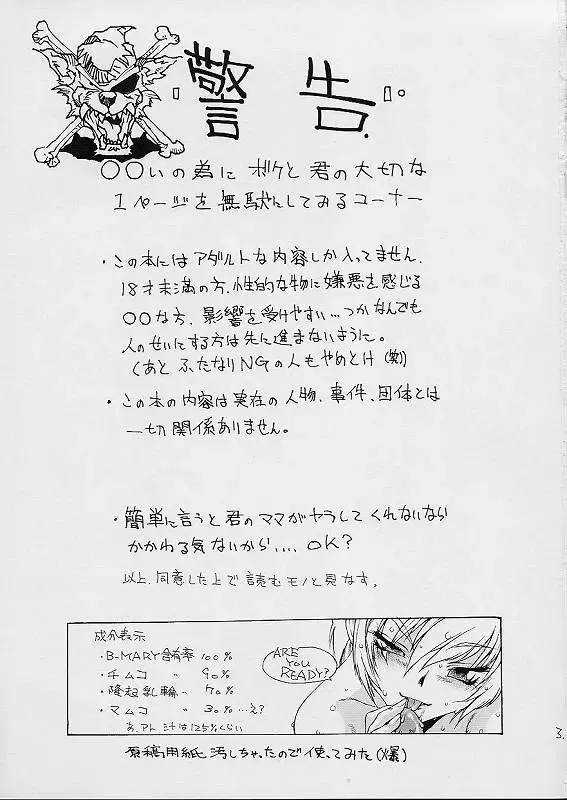 警告。
〇〇いの為にボケと君の大切な
1ページを無駄にしてみるコーナー
・この本にはアダルトな内容しか入ってません。
18才未満の方、性的な物に嫌悪を感じる
〇〇な方、影響を受けやすい…つかなんでも
人のせいにする方は先に進まないように。
(あと ふたなりNGの人もやめとけ(笑))
・この本の内容は実在の人物、事件、団体とは
一切関係ありません。
・簡単に言うと君のママがヤラしてくれないなら
かかわる気ないから.... OK?
以上、同意した上で読むモノと見なす。
成分表示
・B-MARY含有率 100%
・チムコ 〃 90%
・隆起乳輪 〃 70%
・マムコ 〃 30% …え?
あ、アト 汁は125%くらい
ARE YOU READY?
原稿用紙汚しちゃったので使ってみた(爆)
3.